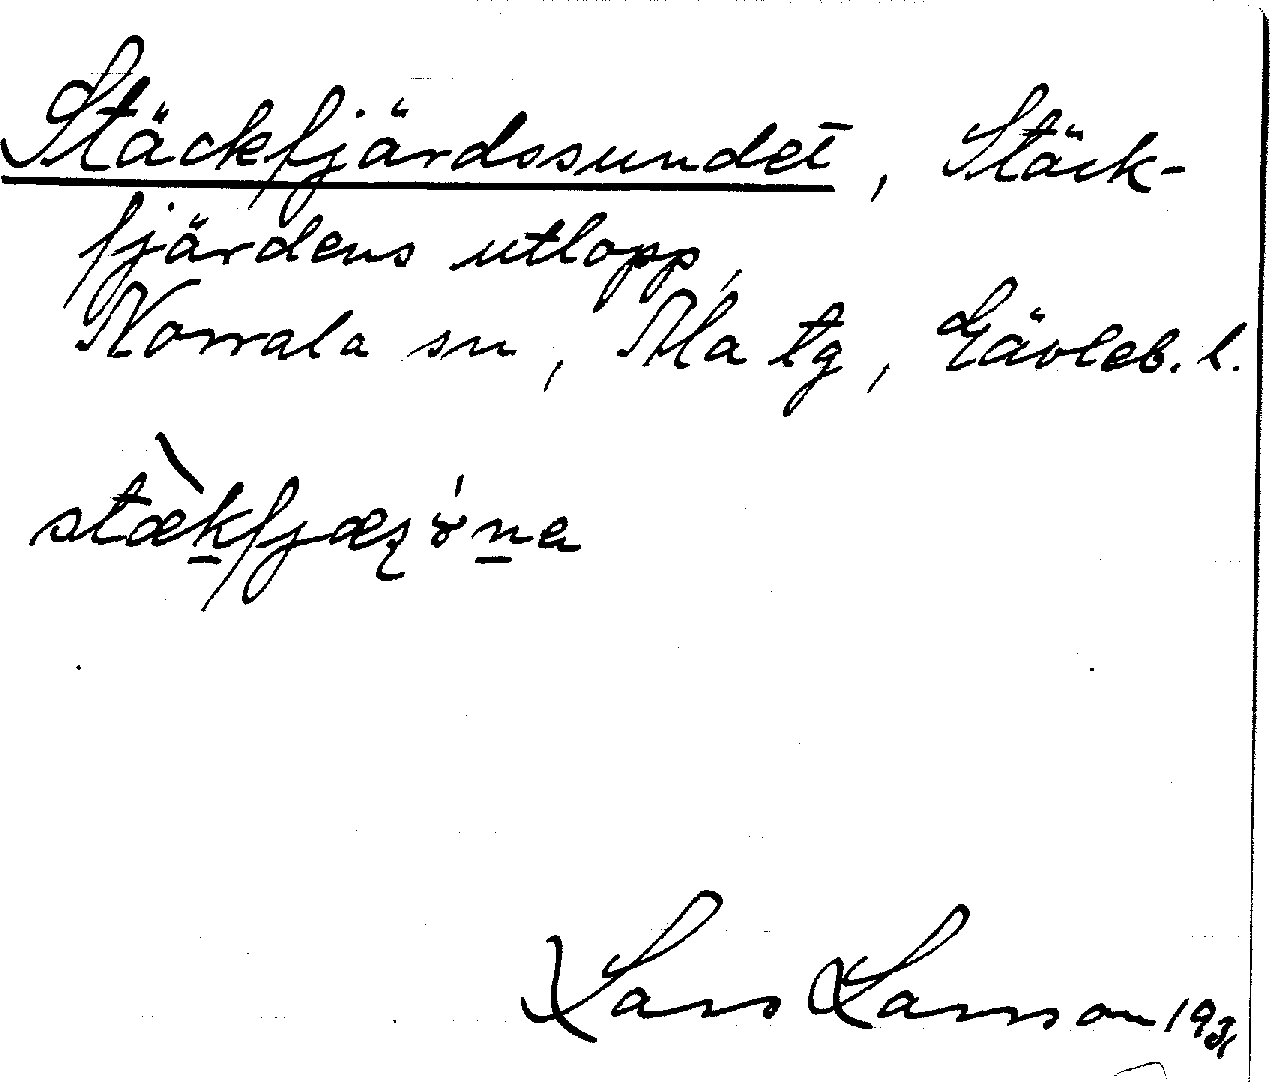 Stäckfjärdssundet, Stäck-
fjärdens utlopp,
Norrala sn, Ala tg, Gävleb. l.
Lars Larsson 1931